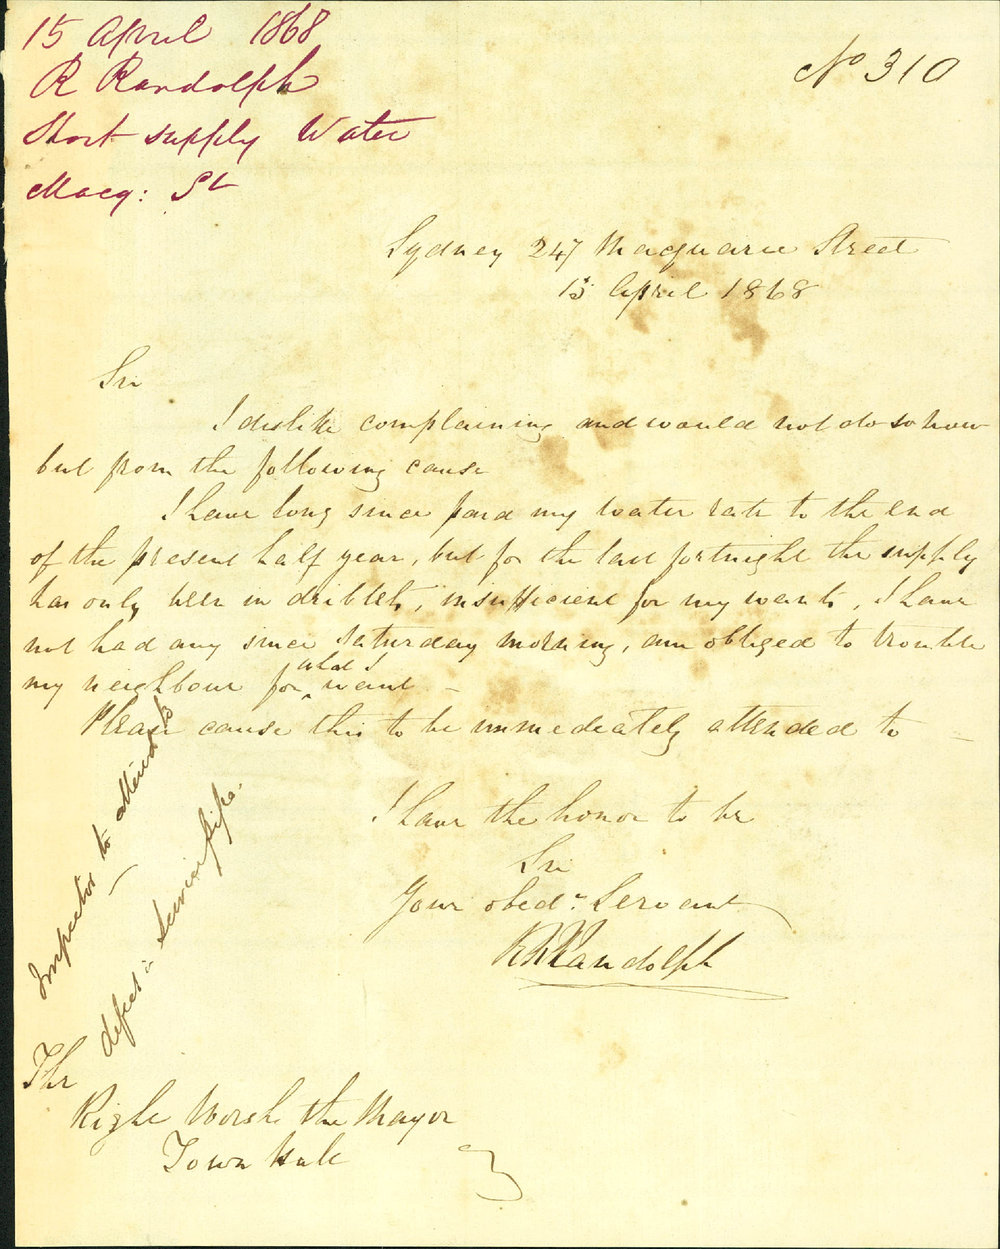 15 April 1868
R Randolph
Short supply Water
Macq: St
No 310
Sydney 247 Macquarie Street
15 April 1868
Sir
I dislike complaining and would not do so now
but from the following cause
I have long since paid my water rate to the end
of the present half year, but for the last fortnight the supply
has only been in driblets, insufficient for my wants, I have
not had any since Saturday morning, am obliged to trouble
my neighbour for what I want –
Please cause this to be immediately attended to –
I have the honor to be
Sir
Your obedt. Servant
R R Randolph
Inspector to attend to
defect in Service pipe.
The
Right Worsh the Mayor
Town Hall